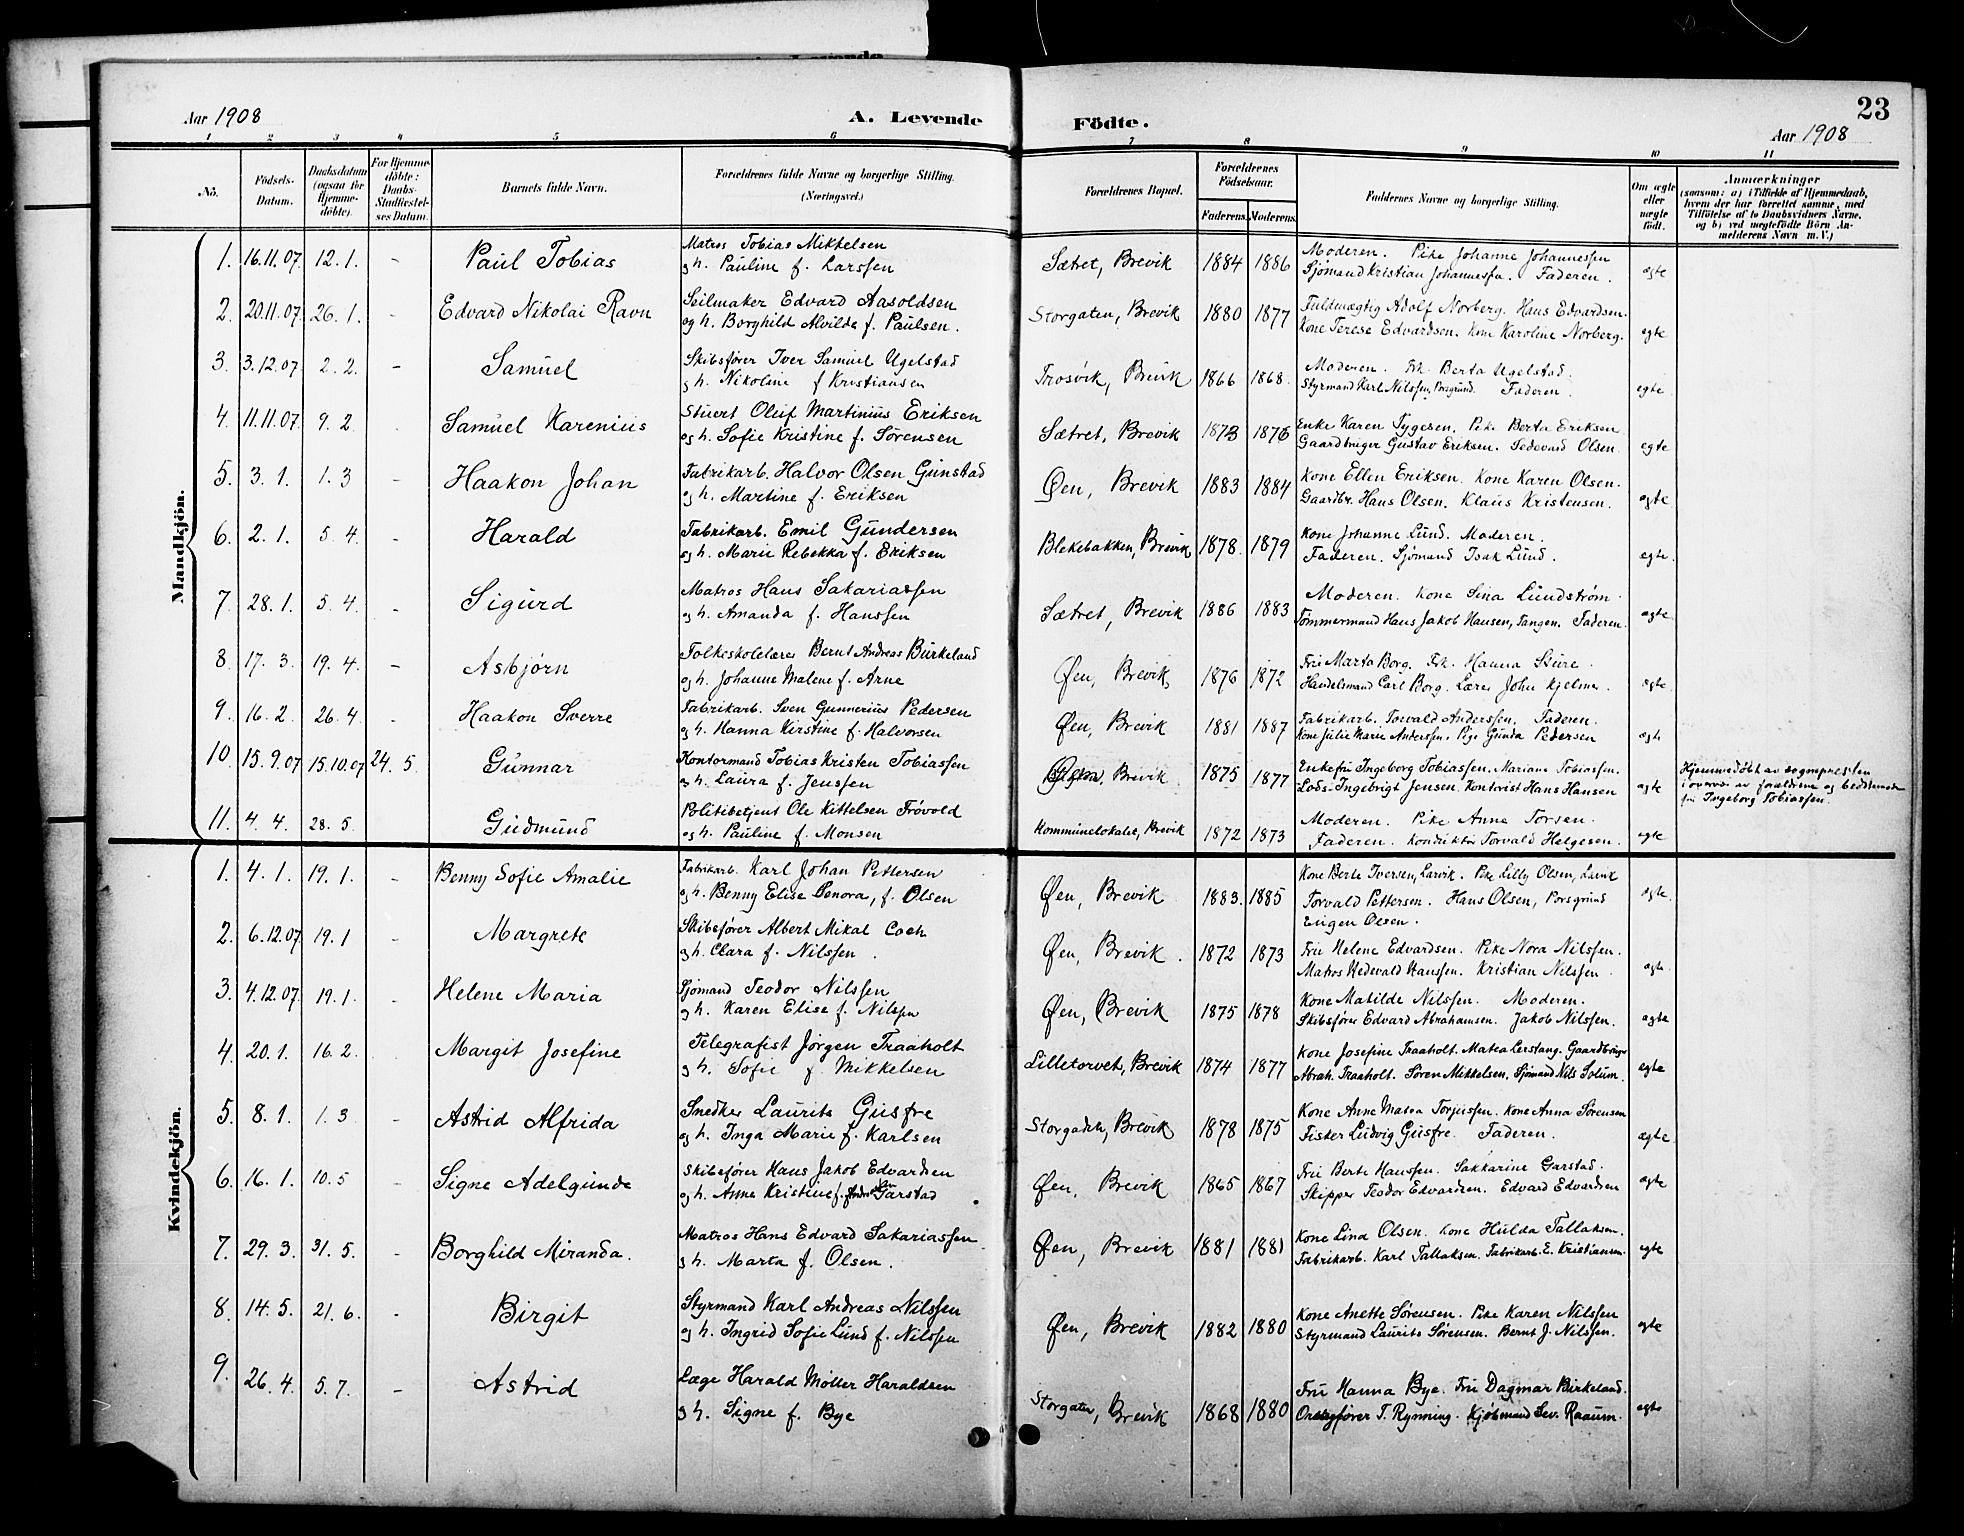 Levende
23
Aar 1908 A. Levende Födte. Aar 1908
1 2 3 4 5 6 7 8 9 10 11
No.
Födsels-Datum.
Daabsdatum (ogsaa for Hjemme-döbte).
For Hjemme-döbte: Daabs-Stadfæstel-ses Datum.
Barnets fulde Navn.
Forældrenes fulde Navne og borgerlige Stilling. (Næringsvei.)
Forældrenes Bopæl.
Forældrenes Födselsaar.
Faderens. Moderens.
Faddernes Navne og borgerlige Stilling.
Om ægte eller uægte födt.
Anmærkninger
(saasom: a) i Tilfælde af Hjemmedaab,
hvem der har forrettet samme, med
Tilföielse af to Daabsvidners Navne,
og b) ved uægtefödte Börn An-
melderens Navn m. V.)
Mandkjön.
1. 16.11.07 12.1. - Paul Tobias Matros Tobias Mikkelsen og h. Pauline f. Larssen Sætret, Brevik 1884 1886 Moderen. Pike Johanne Johannessen Sjømand Kristian Johannessen. Faderen. ægte
2. 20.11.07 26.1. - Edvard Nikolai Ravn Seilmaker Edvard Aasoldsen og h. Borghild Alvilde f. Paulsen. Storgaten, Brevik 1880 1877 Fuldmægtig Adolf Norberg. Hans Edvardsen. Kone Terese Edvardsen. Kone Karoline Norberg. ægte
3. 3.12.07 2.2. - Samuel Skibsfører Iver Samuel Ugelstad og h. Nikoline f Kristiansen Trosvik, Brevik 1866 1868. Moderen. Frk. Berta Ugelstad. Styrmand Karl Nilssen, Porsgrund. Faderen. ægte
4. 11.11.07 9.2 Samuel Karenius Stuert Oluf Martinius Eriksen og h. Sofie Kristine f. Sørensen Sætret, Brevik 1873 1876 Enke Karen Tygesen. Pike Berta Eriksen Gaardbruger Gustav Eriksen. Sedevard Olsen ægte
5. 3.1. 1.3 - Haakon Johan Fabrikarb. Halvor Olsen Gunstad og h. Martine f. Eriksen Øen, Brevik 1883 1884 Kone Ellen Eriksen. Kone Karen Olsen. Gaardbr. Hans Olsen. Klaus Kristensen. ægte
6. 2.1. 5.4. - Harald Fabrikarb. Emil Gundersen og h. Marie Rebekka f. Eriksen Blekebakken, Brevik 1878. 1879 Kone Johanne Lund. Moderen. Faderen. Sjømand Isak Lund. ægte.
7. 28.1. 5.4. - Sigurd Matros Hans Sakariassen og h. Amanda f. Hanssen Sætret, Brevik 1886 1883 Moderen. Kone Sina Lundstrøm. Tømmermand Hans Jakob Hansen, Tangen. Faderen. ægte
8. 17.3. 19.4. - Asbjørn Folkeskolelærer Bernt Andreas Birkeland og h. Johanne Malene f. Arne Øen, Brevik 1876 1872 Fru Marta Borg. Frk. Hanna Sture. Handelsmand Carl Borg. Lærer John Kjelmer. ægte
9. 16.2. 26.4. - Haakon Sverre Fabrikarb. Sven Gunnerius Pedersen og h. Hanna Kirstine f. Halvorsen Øen, Brevik 1881 1887 Fabrikarb. Torvald Anderssen. Faderen. Kone Julie Marie Anderssen. Pige Gunda Pedersen ægte
10. 15.9.07 15.10.07 24.5. Gunnar Kontormand Tobias Kristen Tobiassen og h. Laura f. Jenssen Brevik 1875 1877 Enkefru Ingeborg Tobiassen. Mariane Tobiassen. Lods-Ingebrigt Jensen. Kontorist Hans Hansen ægte Hjemmedøbt av sogneprესten i overvær av forældrene og bedstemoder fru Ingeborg Tobiassen.
11. 4.4. 28.5. Gudmund Politibetjent Ole Kittelsen Frövold og h. Pauline f. Monsen Kommunelokalet, Brevik 1872 1873 Moderen. Pike Anna Torsen. Faderen. Konduktør Torvald Helgesen. ægte
Kvindekjön.
1. 4.1. 19.1. - Benny Sofie Amalie Fabrikarb. Karl Johan Pettersen og h. Benny Elise Lenora, f. Olsen Øen, Brevik 1883. 1885 Kone Berte Iversen, Larvik. Pike Lilly Olsen, Larvik Torvald Pettersen. Hans Olsen, Porsgrund Eugen Olsen. ægte.
2. 6.12.07 19.1 - Margrete Skibsfører Albert Mikal Coch og h. Clara f. Nilssen. Øen, Brevik. 1872 1873 Fru Helene Edvardsen. Pike Nora Nilssen. Matros Hedevald Hanssen. Kristian Nilssen. ægte
3. 4.12.07 19.1. - Helene Maria Sjømand Teodor Nilssen og h. Karen Elise f. Nilssen Øen, Brevik 1875 1878 Kone Matilde Nilssen. Moderen. Skibsfører Edvard Abrahamsen. Jakob Nilssen. ægte
4. 20.1. 16.2. Margit Josefine Telegrafist Jørgen Traaholt og h. Sofie f. Mikkelsen Lilletorvet, Brevik 1874 1877 Kone Josefine Traaholt. Matea Lerstang. Gaardbruger Abrah. Traaholt. Søren Mikkelsen. Sjømand Nils Solum. ægte
5. 8.1. 1.3 - Astrid Alfrida Snedker Laurits Gusfre og h. Inga Marie f. Karlsen Storgaden, Brevik 1878 1875 Kone Anne Matea Torjussen. Kone Anna Sørensen Fisker Ludvig Gusfre. Faderen. ægte
6. 16.1. 10.5 - Signe Adelgunde Skibsfører Hans Jakob Edvardsen og h. Anne Kristine f. Garstad Øen, Brevik 1865 1867 Fru Berte Hanssen. Sakkarine Garstad. Skipper Teodor Edvardsen. Edvard Edvardsen ægte
7. 29.3. 31.5. - Borghild Miranda. Matros Hans Edvard Sakariassen og h. Marta f. Olsen. Øen, Brevik 1881 1881 Kone Lina Olsen. Kone Hulda Tallaksen. Fabrikarb. Karl Tallaksen. Fabrikarb. E. Kristiansen. ægte
8. 14.5. 21.6. - Birgit Styrmand Karl Andreas Nilssen og h. Ingrid Sofie Lund f. Nilssen Øen, Brevik 1882 1880 Kone Anette Sørensen. Pike Karen Nilssen Styrmand Laurits Sørensen. Bernt J. Nilssen. ægte
9. 26.4. 5.7. - Astrid Læge Harald Møller Haraldsen og h. Signe f. Bye Storgaten, Brevik 1868 1880 Fru Hanna Bye. Fru Dagmar Birkeland. T. Rynning. Kjøbmand Sev. Raaum. ægte